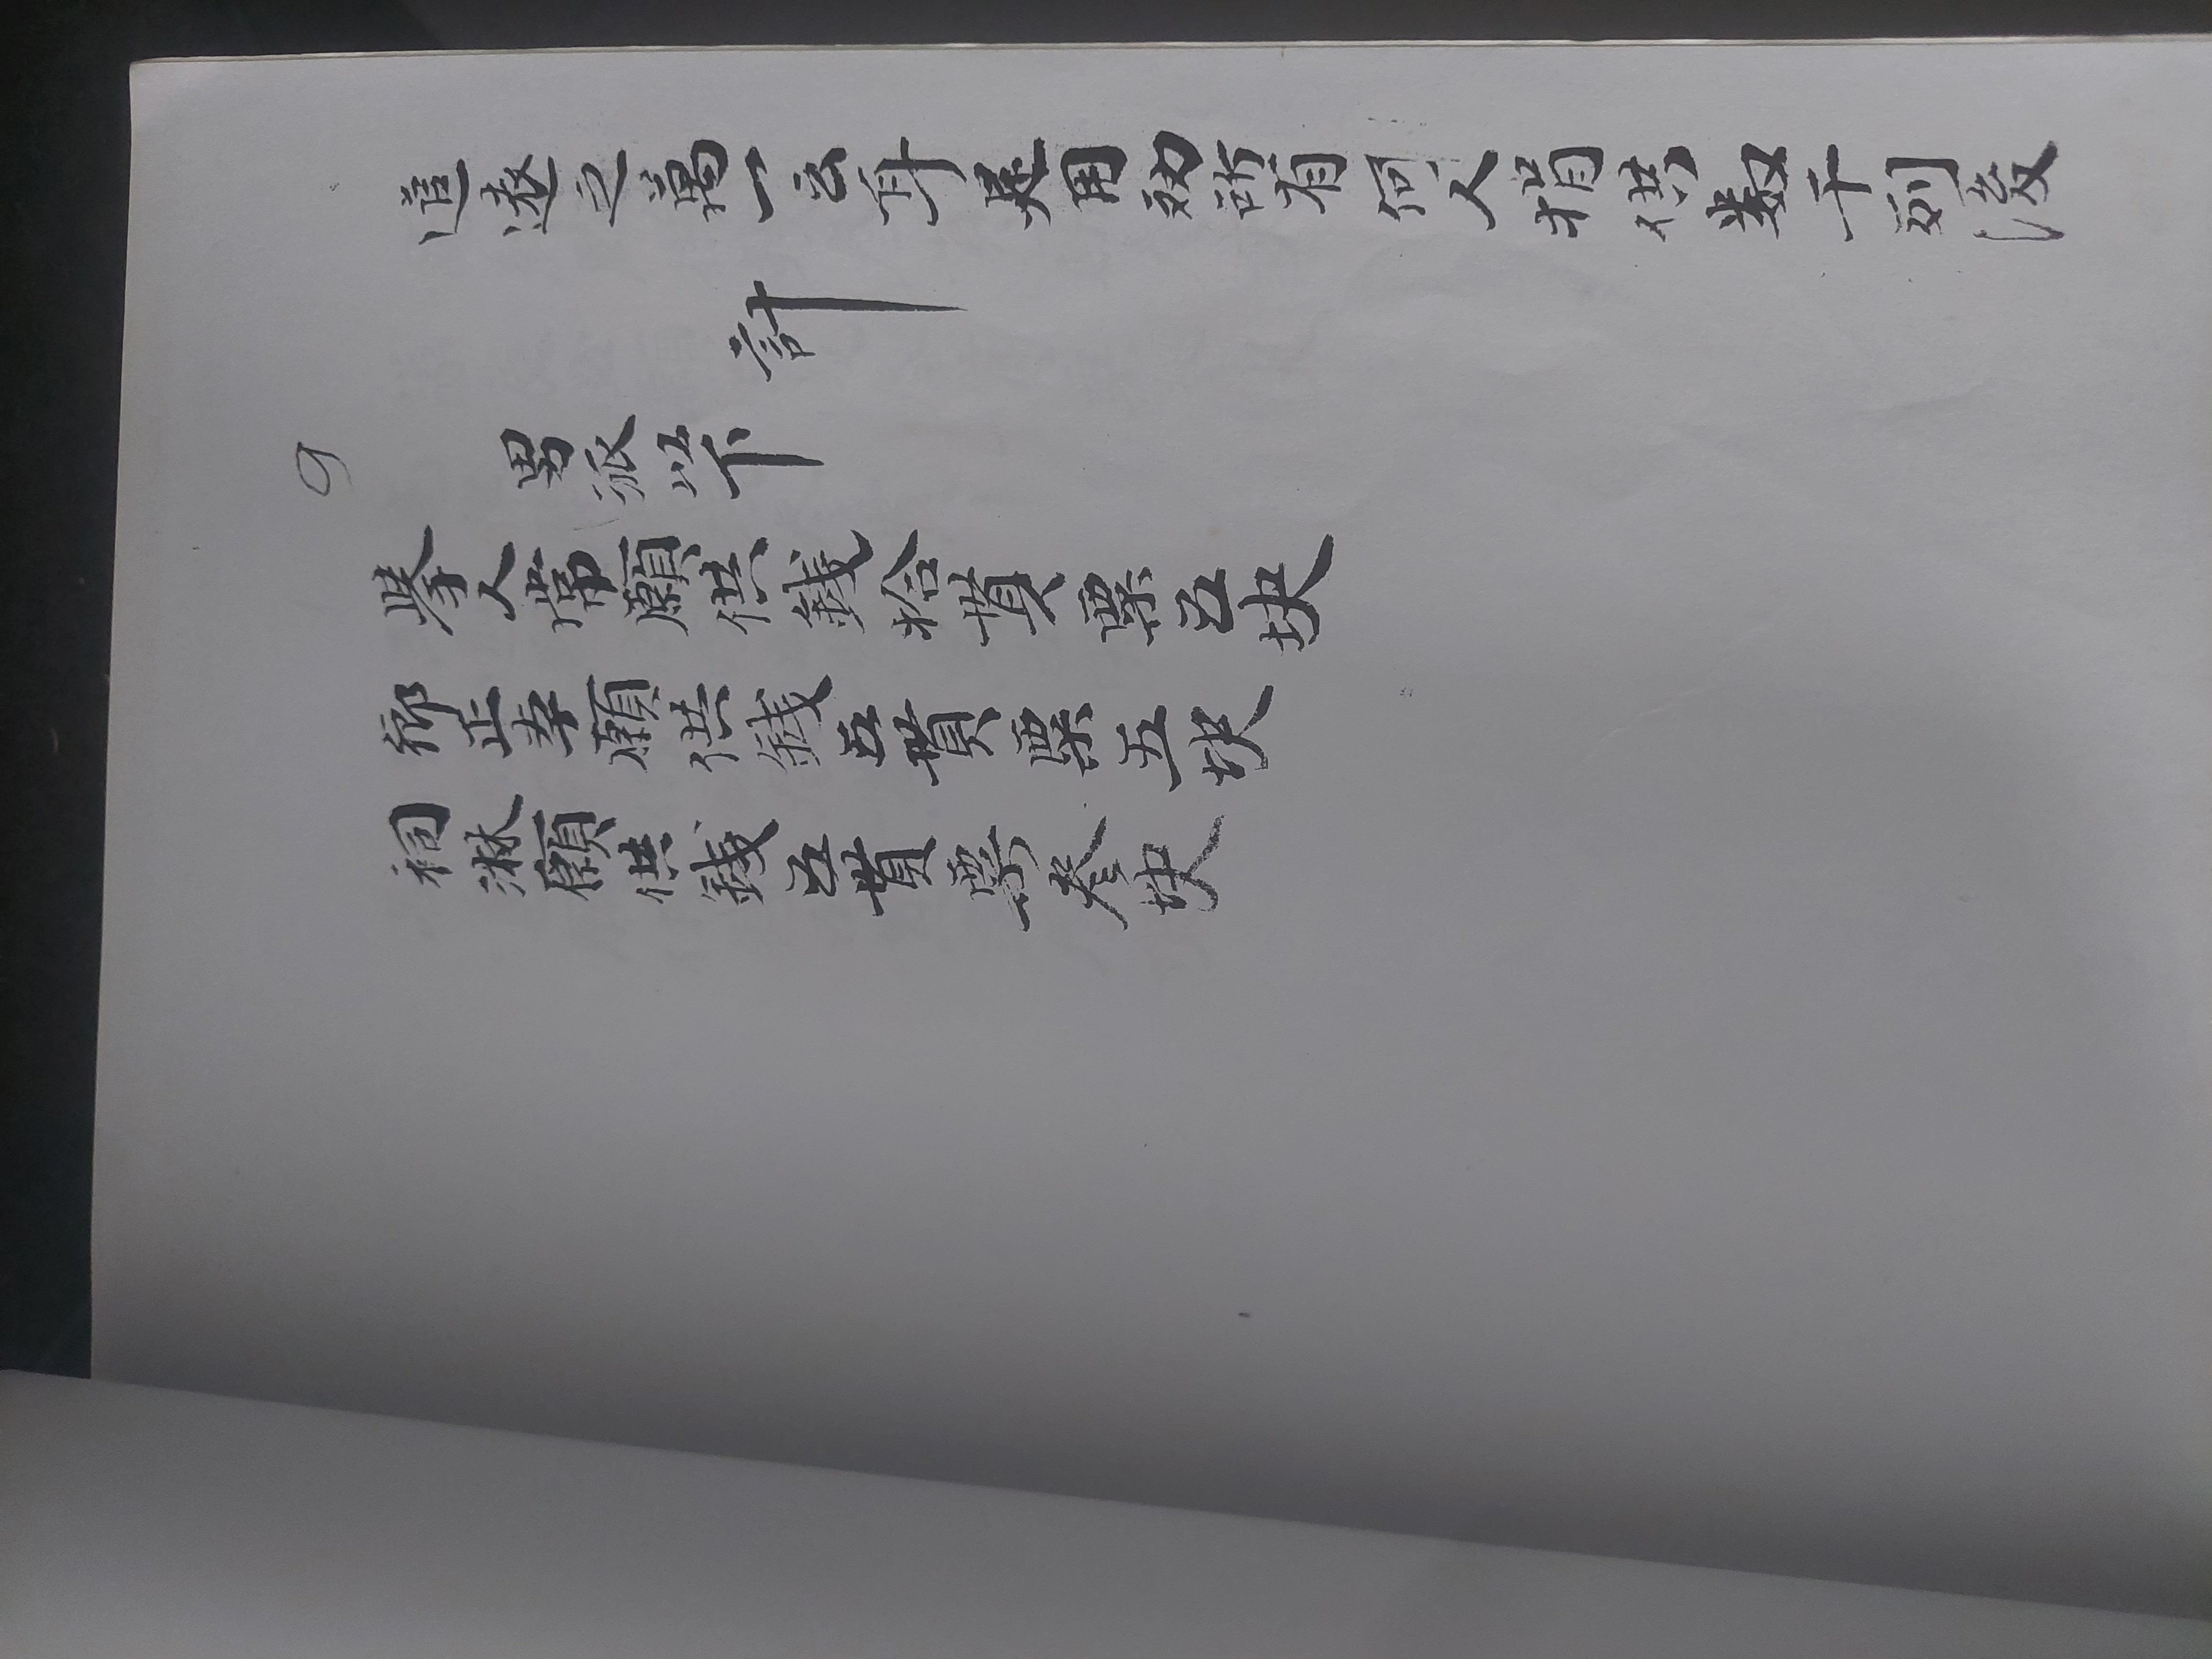 追遠之萬一云耳是用効所有何人捐供數千列後
計
9
男派以下
舉人常願供錢拾貫票五块
鄉正李願供錢五貫票五块
祠淋願供錢五貫票叁块